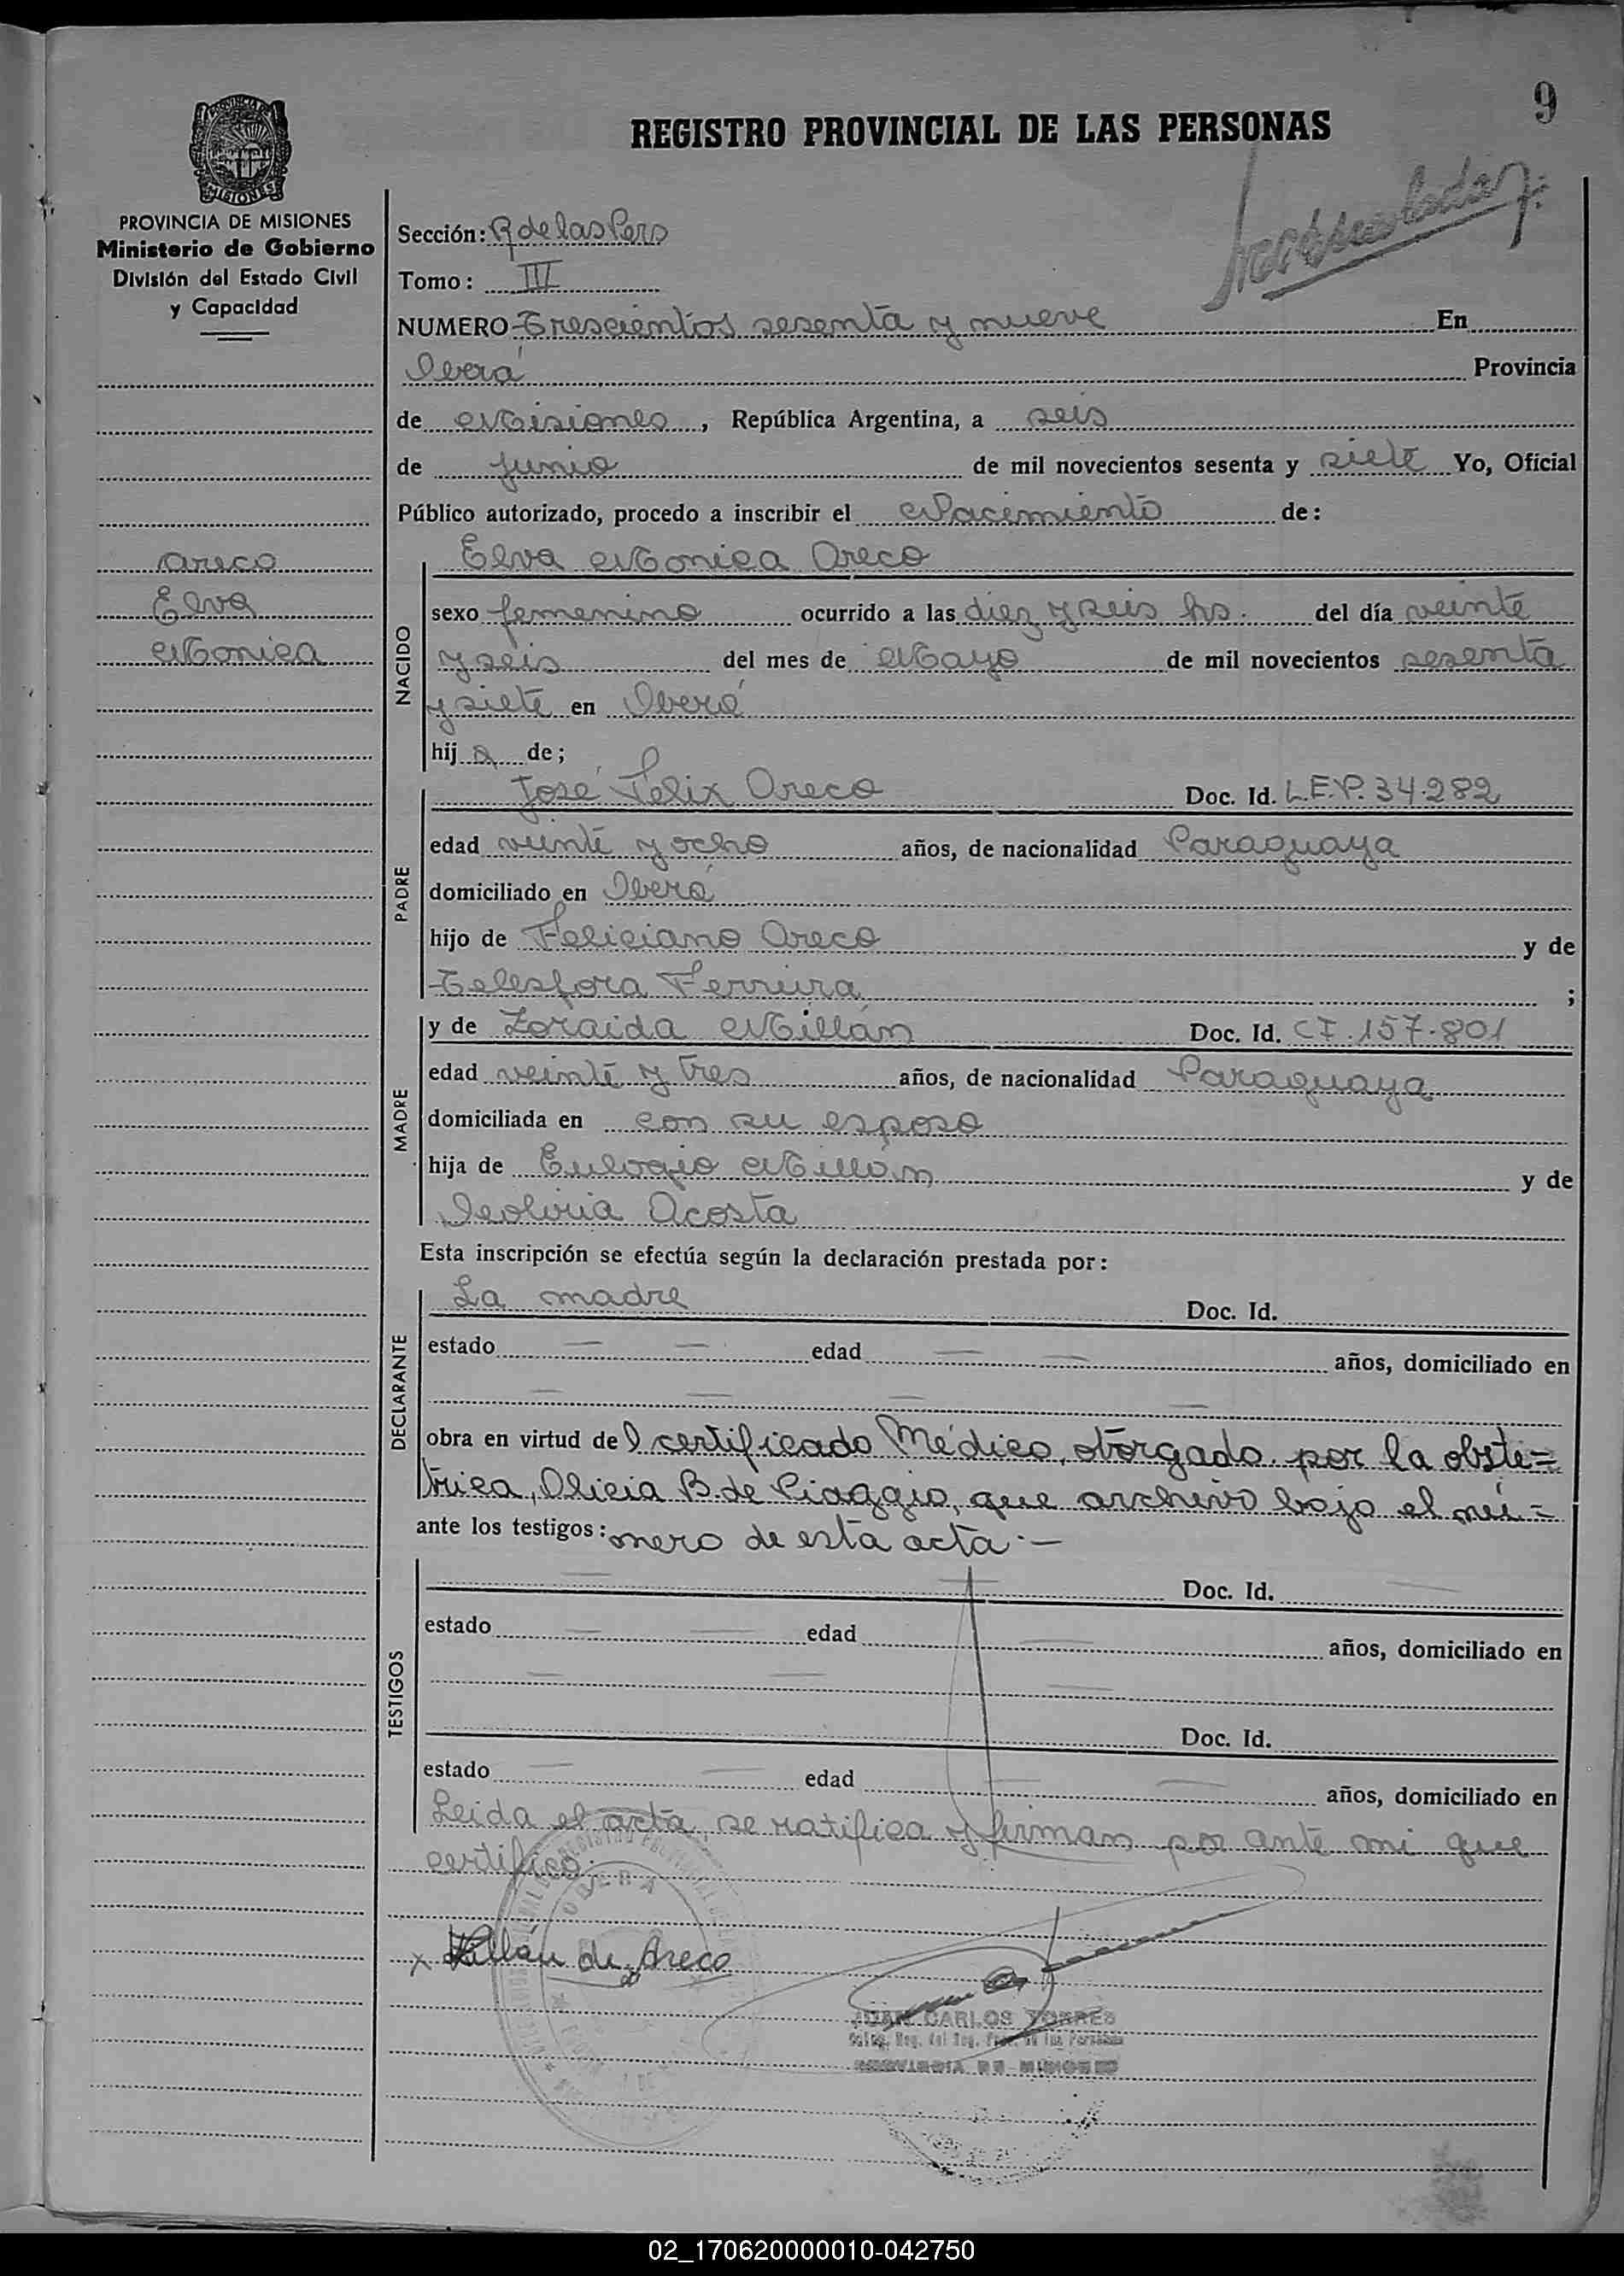 9
REGISTRO PROVINCIAL DE LAS PERSONAS
PROVINCIA DE MISIONES
Ministerio de Gobierno
División del Estado Civil
y Capacidad
Sección: R de las Pers
Tomo: IV
NUMERO Trescientos sesenta y nueve En
Oberá Provincia
de Misiones, República Argentina, a seis
de junio de mil novecientos sesenta y siete Yo, Oficial
Público autorizado, procedo a inscribir el Nacimiento de:
Areco
Elva
Monica
NACIDO
Elva Monica Areco
sexo femenino ocurrido a las diez y seis hs. del día veinte
y seis del mes de Mayo de mil novecientos sesenta
y siete en Oberá
hij a de;
PADRE
José Felix Areco Doc. Id. L.E.P. 34.282
edad veinte y ocho años, de nacionalidad Paraguaya
domiciliado en Oberá
hijo de Feliciano Areco y de
Telesfora Ferreira ;
MADRE
y de Zoraida Millán Doc. Id. CI. 157.801
edad veinte y tres años, de nacionalidad Paraguaya
domiciliada en con su esposo
hija de Eulogio Millán y de
Acosta
Esta inscripción se efectúa según la declaración prestada por:
DECLARANTE
La madre Doc. Id.
estado — — edad — — años, domiciliado en
— — — —
obra en virtud del certificado Médico, otorgado por la obste=
trica, Alicia B. de Piaggio, que archivo bajo el nú=
ante los testigos: mero de esta acta.—
TESTIGOS
— — Doc. Id. —
estado — — edad — años, domiciliado en
— — —
Doc. Id.
estado — — edad — — años, domiciliado en
Leida el acta, se ratifica y firman por ante mi que
certifico.
OBERA
x Millán de Areco
JUAN CARLOS TORRES
PROVINCIA DE MISIONES
02_170620000010-042750